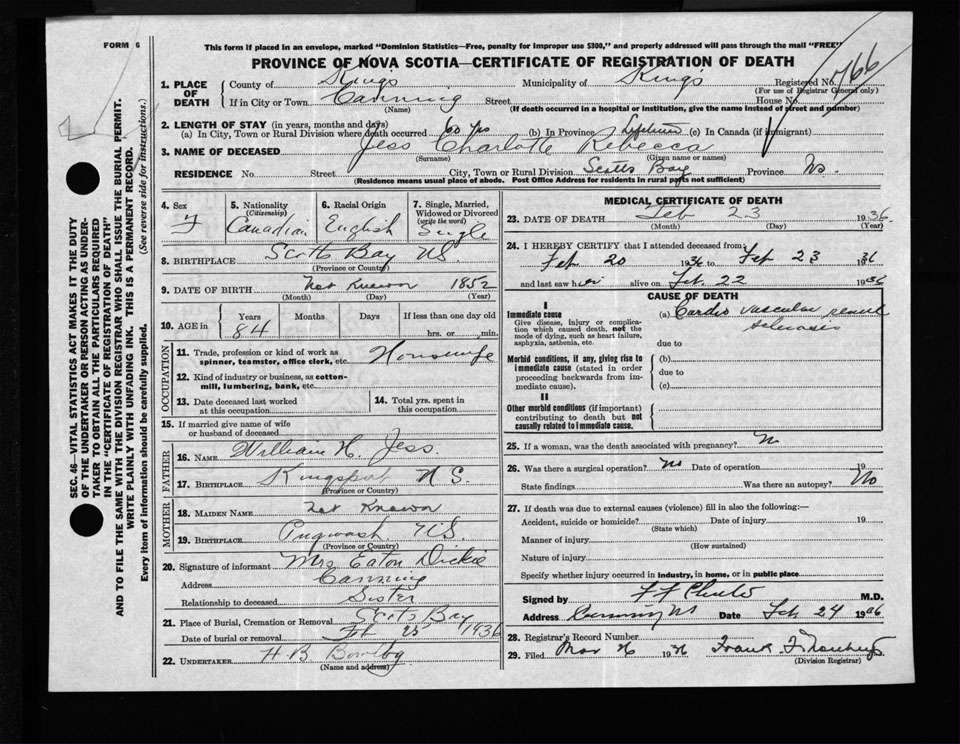 FORM 6
This form if placed in an envelope, marked "Dominion Statistics—Free, penalty for improper use $300," and properly addressed will pass through the mail "FREE"
PROVINCE OF NOVA SCOTIA—CERTIFICATE OF REGISTRATION OF DEATH
1. PLACE OF DEATH County of Kings Municipality of Kings Registered No. 766
(For use of Registrar General only)
If in City or Town Canning Street House No.
(Name) (If death occurred in a hospital or institution, give the name instead of street and number)
2. LENGTH OF STAY (in years, months and days)
(a) In City, Town or Rural Division where death occurred 60 yrs (b) In Province Lifetime (c) In Canada (if immigrant)
3. NAME OF DECEASED Jess Charlotte Rebecca
(Surname) (Given name or names)
RESIDENCE No. Street City, Town or Rural Division Scotts Bay Province NS.
(Residence means usual place of abode. Post Office Address for residents in rural parts not sufficient)
4. Sex F
5. Nationality (Citizenship) Canadian
6. Racial Origin English
7. Single, Married, Widowed or Divorced (write the word) Single
8. BIRTHPLACE Scotts Bay NS.
(Province or Country)
9. DATE OF BIRTH Not Known 1852
(Month) (Day) (Year)
10. AGE in Years 84 Months Days If less than one day old hrs. or min.
OCCUPATION
11. Trade, profession or kind of work as spinner, teamster, office clerk, etc. Housewife
12. Kind of industry or business, as cotton-mill, lumbering, bank, etc.
13. Date deceased last worked at this occupation
14. Total yrs. spent in this occupation
15. If married give name of wife or husband of deceased
FATHER
16. NAME William H. Jess
17. BIRTHPLACE Kingsport N S.
(Province or Country)
MOTHER
18. MAIDEN NAME Not Known
19. BIRTHPLACE Pugwash N.S.
(Province or Country)
20. Signature of informant Mrs Eaton Dickie
Address Canning
Relationship to deceased Sister
21. Place of Burial, Cremation or Removal Scots Bay
Date of burial or removal Feb 25 1936
22. UNDERTAKER H B Bowlby
(Name and address)
MEDICAL CERTIFICATE OF DEATH
23. DATE OF DEATH Feb 23 1936
(Month) (Day) (Year)
24. I HEREBY CERTIFY that I attended deceased from:
Feb. 20 1936 to Feb 23 1936
and last saw her alive on Feb. 22 1936
CAUSE OF DEATH
I
Immediate cause
Give disease, injury or complication which caused death, not the mode of dying, such as heart failure, asphyxia, asthenia, etc.
(a) Cardio vascular renal sclerosis
due to
Morbid conditions, if any, giving rise to immediate cause (stated in order proceeding backwards from immediate cause).
(b)
due to
(c)
II
Other morbid conditions (if important) contributing to death but not causally related to immediate cause.
25. If a woman, was the death associated with pregnancy? No
26. Was there a surgical operation? No Date of operation 19
State findings Was there an autopsy? No
27. If death was due to external causes (violence) fill in also the following:—
Accident, suicide or homicide? Date of injury 19
(State which)
Manner of injury
(How sustained)
Nature of injury
Specify whether injury occurred in industry, in home, or in public place
Signed by M.D.
Address Canning NS Date Feb. 24 1936
28. Registrar's Record Number
29. Filed Mar 26 1936 Frank
(Division Registrar)
SEC. 46—VITAL STATISTICS ACT MAKES IT THE DUTY
OF THE UNDERTAKER OR PERSON ACTING AS UNDER-
TAKER TO OBTAIN ALL THE PARTICULARS REQUIRED
IN THE "CERTIFICATE OF REGISTRATION OF DEATH"
AND TO FILE THE SAME WITH THE DIVISION REGISTRAR WHO SHALL ISSUE THE BURIAL PERMIT.
WRITE PLAINLY WITH UNFADING INK. THIS IS A PERMANENT RECORD.
Every item of information should be carefully supplied. (See reverse side for instructions.)